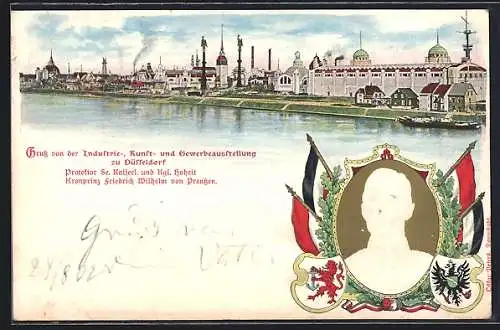 Gruß von der Industrie-, Kunst- und Gewerbeausstellung
zu Düsseldorf
Protektor Se. Kaiserl. und Kgl. Hoheit
Kronprinz Friedrich Wilhelm von Preußen.
Gruß von